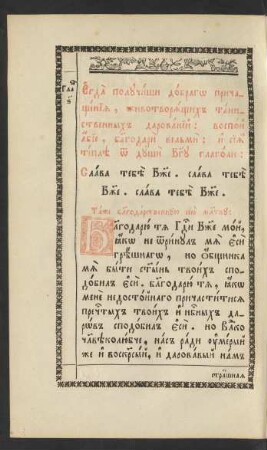 Гла҃
Є҆гда̀ полꙋчи́ши до́брагѡ прича
ще́нїѧ, животворѧ́щихъ та́ин
ственныхъ дарова́нїи: воспо́й
а҆́бїе, благодарѝ вельмѝ: и҆ сїѧ̑
те́плѣ ѿ дꙋшѝ бг҃ꙋ глаго́ли:
Сла́ва тебѣ̀ бж҃е. сла́ва тебѣ̀
бж҃е. сла́ва тебѣ̀ бж҃е.
Та́же благода́рственнꙋю сїю̀ мл҃твꙋ:
Благодарю́ тѧ гдⷭ҇и бж҃е мо́й,
ꙗ҆́кѡ не ѿри́нꙋлъ мѧ̀ є҆сѝ
грѣ́шнаго, но о҆́бщника
мѧ̀ бы́ти ст҃ы́нь твои́хъ спо
до́билъ є҆сѝ. благодарю́ тѧ, ꙗ҆́кѡ
менѐ недосто́йнаго причасти́тисѧ
пречⷭ҇тыхъ твои́хъ и҆ нб҃ныхъ да
рѡ́въ сподо́билъ є҆сѝ. но влⷣко
чл҃вѣколю́бче, на́съ ра́ди ᲂу҆ме́рый
же и҆ воскр҃сы́й, и҆ дарова́вый на́мъ
стра̑шныѧ